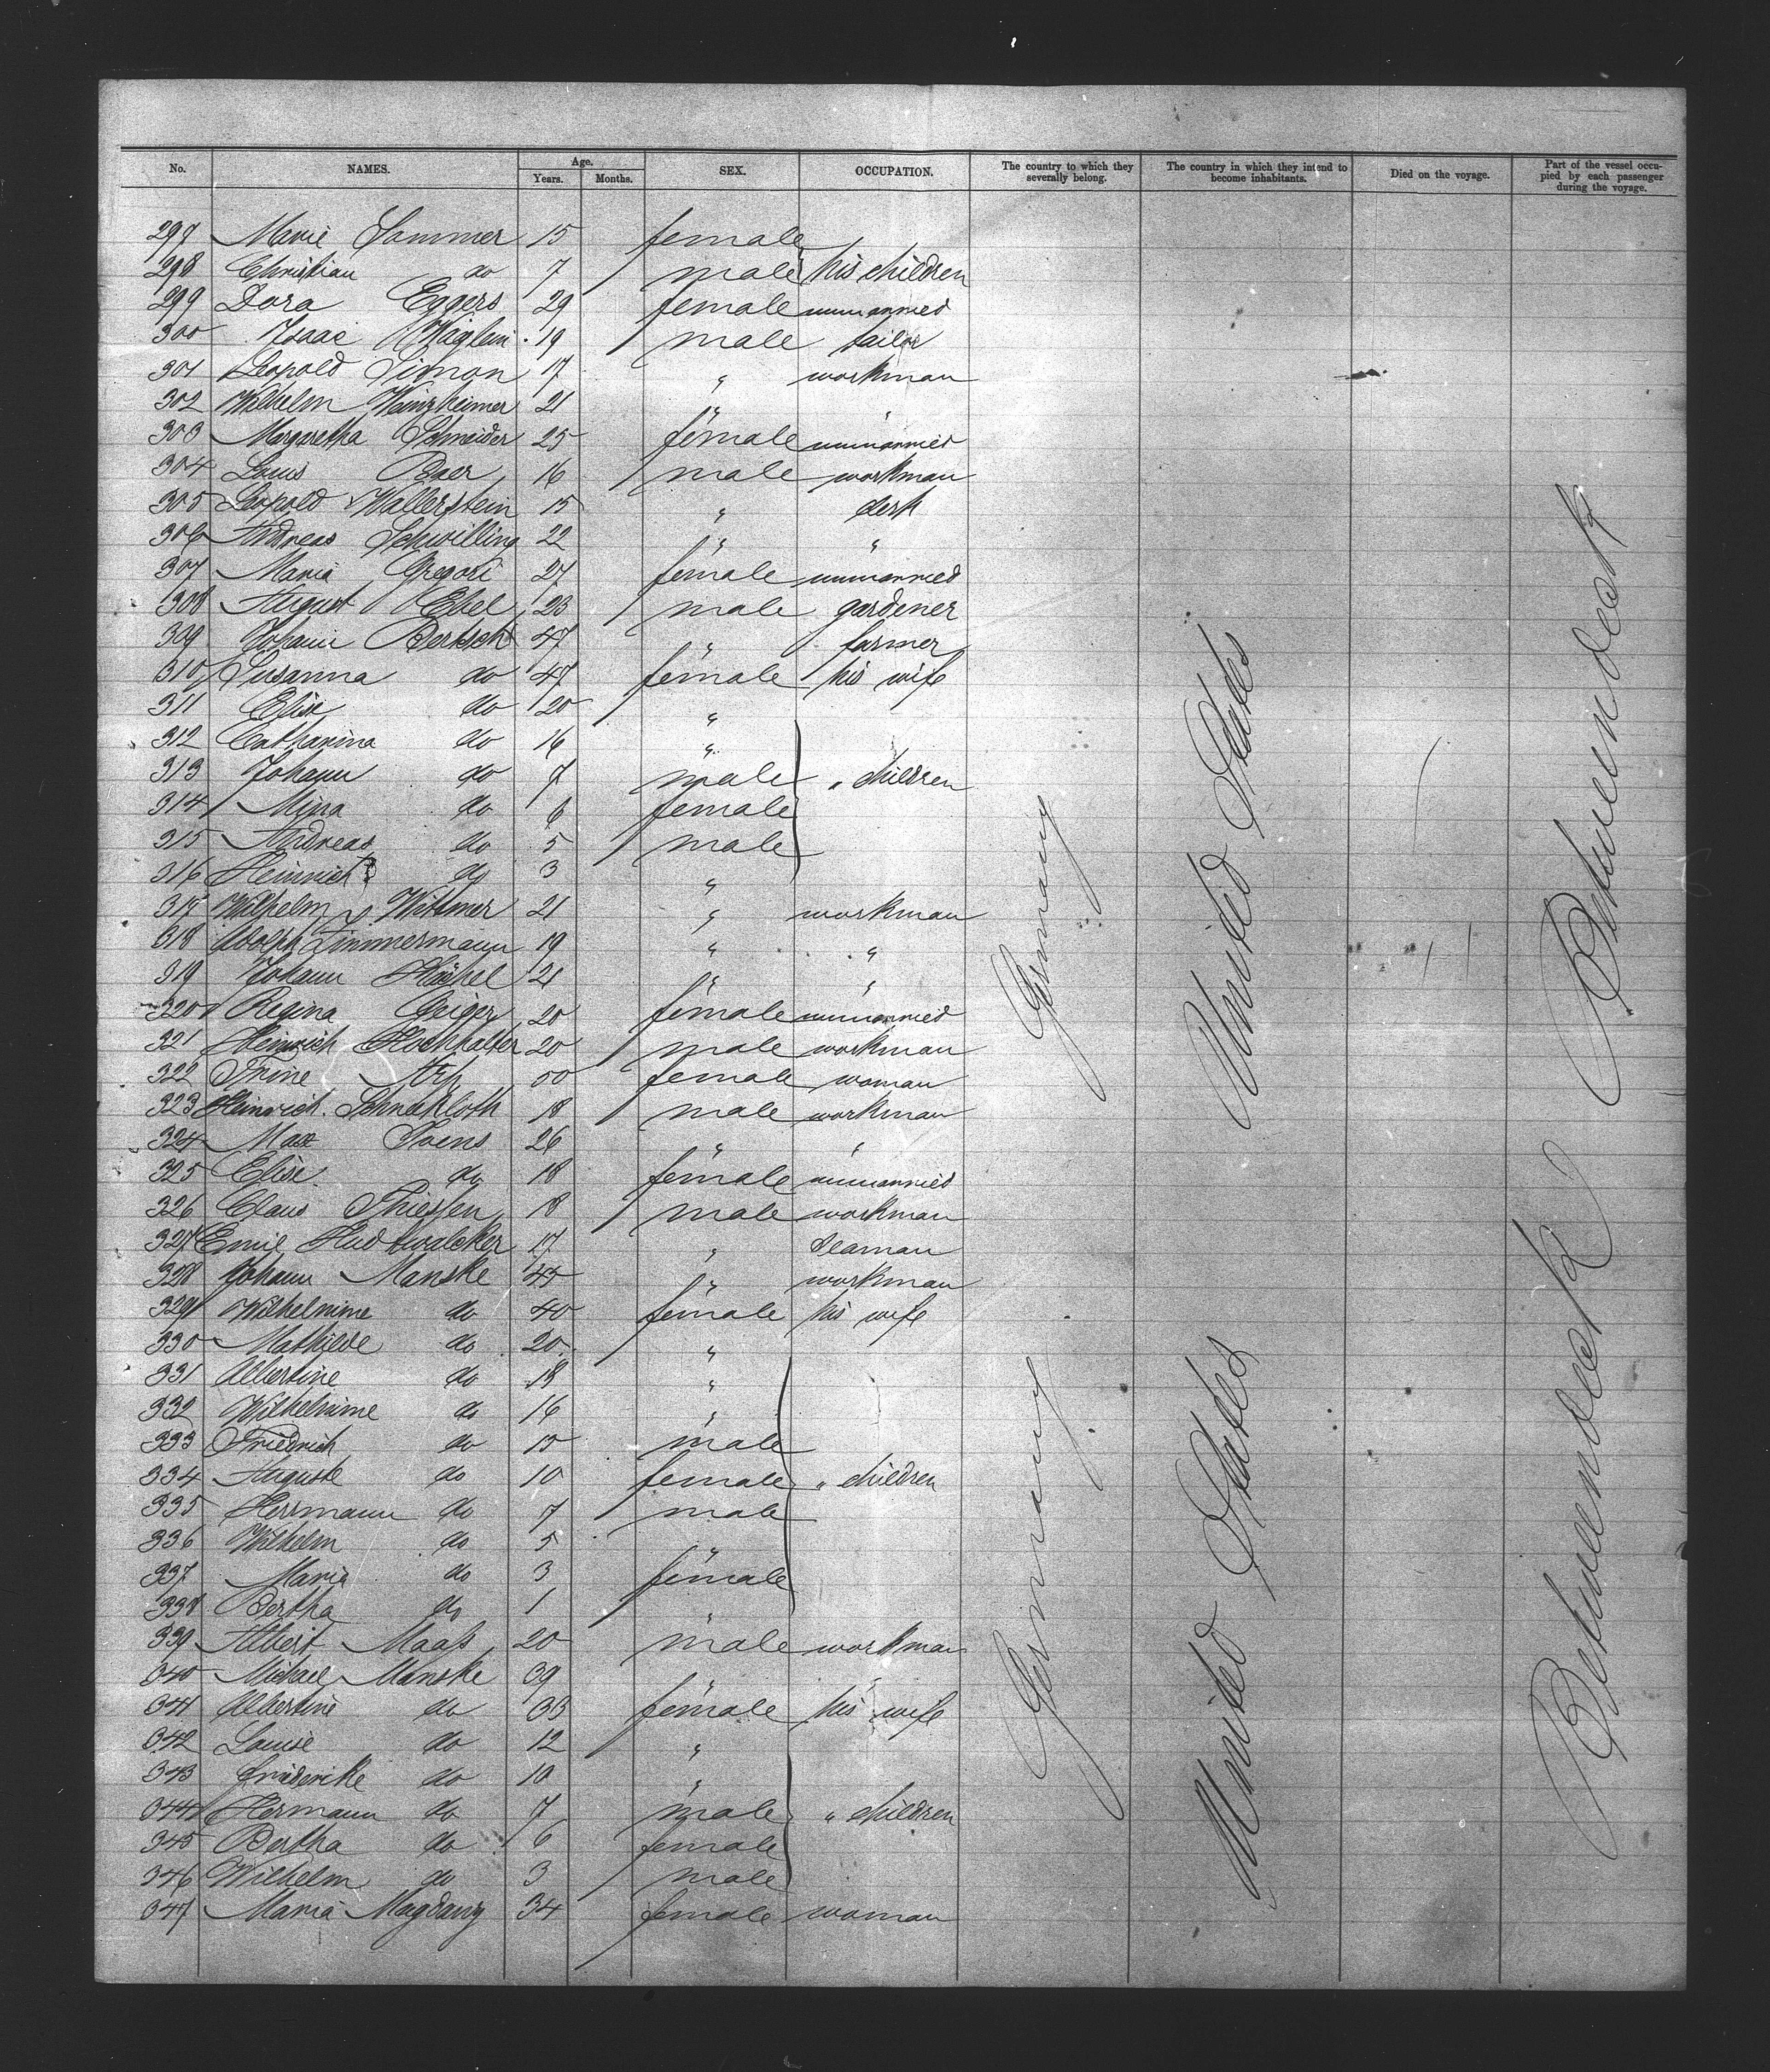 No. NAMES. Age. Years. Months. SEX. OCCUPATION. The country to which they severally belong. The country in which they intend to become inhabitants. Died on the voyage. Part of the vessel occupied by each passenger during the voyage.
297 Marie Sommer 15 female
298 Christian do 7 male his children
299 Dora Eggers 29 female unmarried
300 Isaac 19 male tailor
301 Leopold Simon 17 " workman
302 Wilhelm Weinzheimer 21 " "
303 Margaretha Schneider 25 female unmarried
304 Louis Baer 16 male workman
305 Leopold Wallerstein 15 " clerk
306 Andreas Schwilling 22 " "
307 Maria Gregori 27 female unmarried
308 August Ebel 23 male gardener
309 Johann Bertsch 47 " farmer
310 Susanna do 47 female his wife
311 Elise do 20 "
312 Catharina do 16 "
313 Johann do 7 male " children
314 Mina do 6 female
315 Andreas do 5 male
316 Heinrich do 3 "
317 Wilhelm Wittmer 21 " workman
318 Adolph Zimmermann 19 " "
319 Johann 21 " "
320 Regina Geiger 20 female unmarried
321 Heinrich Hochhalter 20 male workman
322 Trine Arp female woman
323 Heinrich Schnekloth 18 male workman
324 Max Soens 26 " "
325 Elise do 18 female unmarried
326 Claus Thiessen 18 male workman
327 Emil Hudtwalcker 17 " seaman
328 Johann Manske 45 " workman
329 Wilhelmine do 40 female his wife
330 Mathilde do 20 "
331 Albertine do 18 "
332 Wilhelmine do 16 "
333 Friedrich do 15 male
334 Auguste do 10 female " children
335 Herrmann do 7 male
336 Wilhelm do 5 "
337 Maria do 3 female
338 Bertha do 1 "
339 Albert Maass 20 male workman
340 Michael Manske 39 " "
341 Albertine do 33 female his wife
342 Louise do 12 "
343 Friederike do 10 "
344 Hermann do 7 male " children
345 Bertha do 6 female
346 Wilhelm do 3 male
347 Maria Magdanz 34 female woman
Germany United States Betweendeck
Germany United States Betweendeck